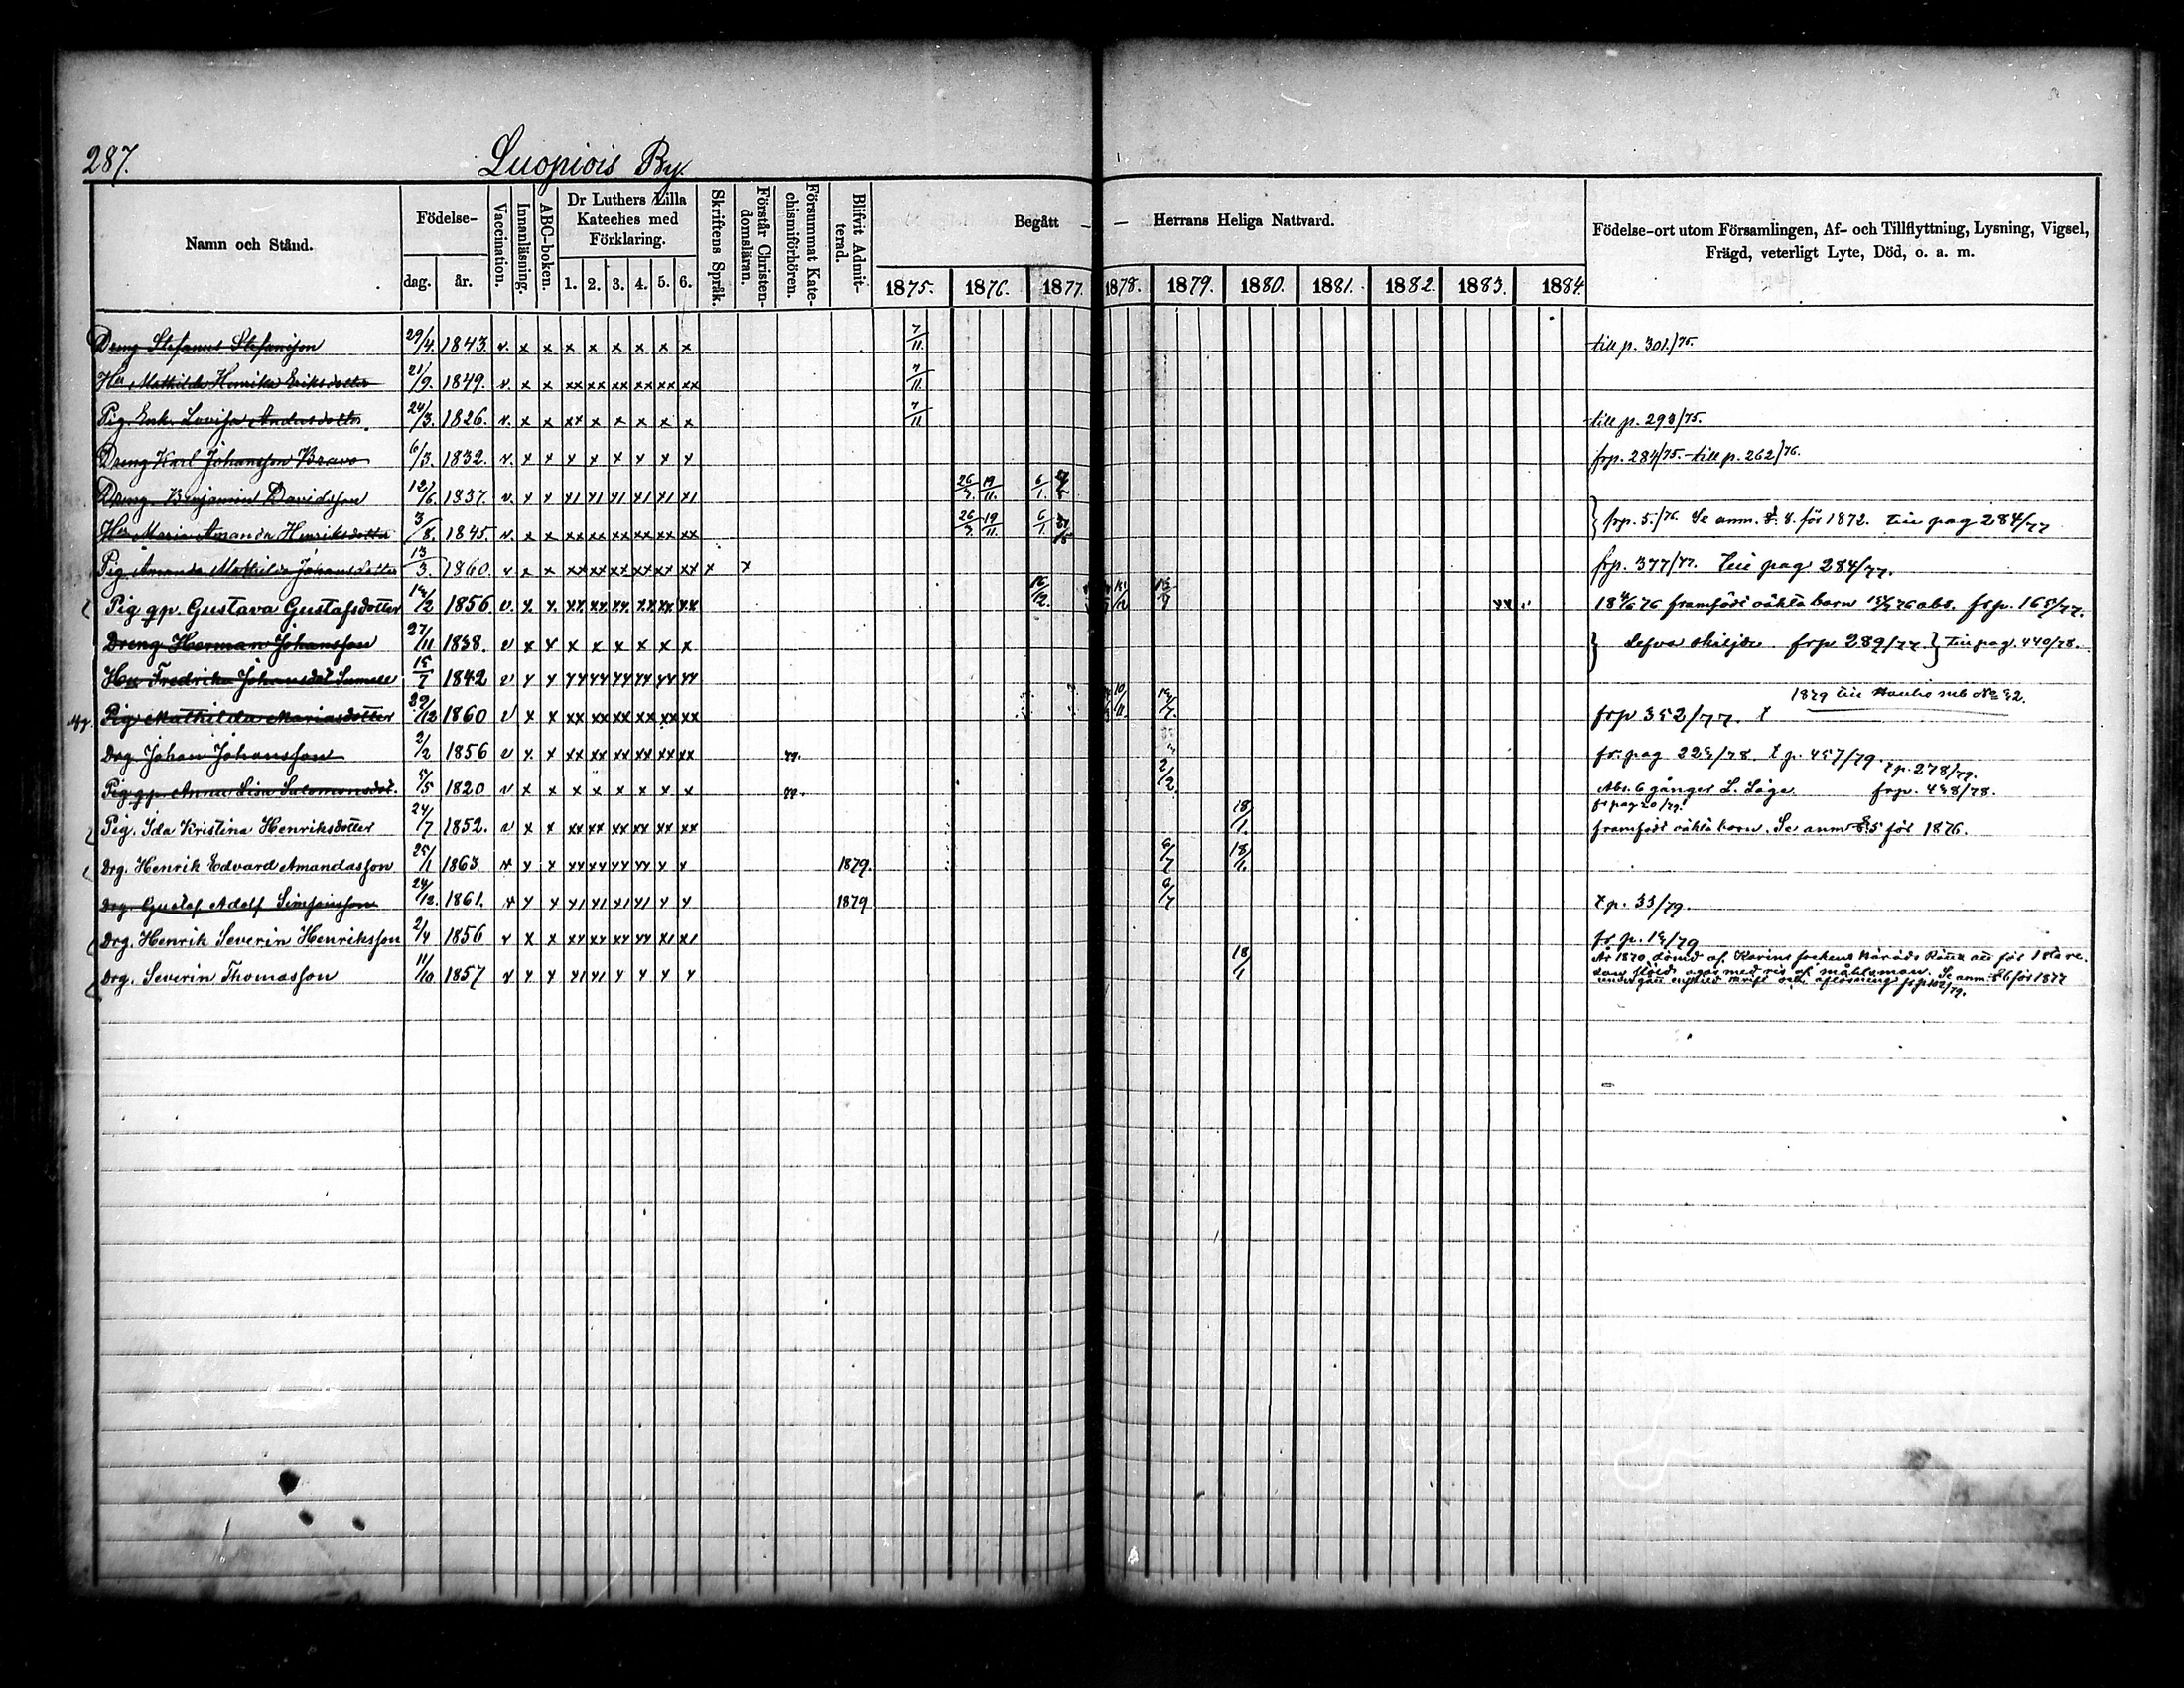 287.
Luopiois By.
Namn och Stånd.
Födelse-
dag. år.
Vaccination.
Innanläsning.
ABC-boken.
Dr Luthers Lilla Kateches med Förklaring.
1. 2. 3. 4. 5. 6.
Skriftens Språk.
Förstår Christendomsläran.
Försummat Katechismiförhören.
Blifvit Admitterad.
Begått — — Herrans Heliga Nattvard.
1875. 1876. 1877. 1878. 1879. 1880. 1881. 1882. 1883. 1884.
Födelse-ort utom Församlingen, Af- och Tillflyttning, Lysning, Vigsel,
Frägd, veterligt Lyte, Död, o. a. m.
Dreng Stefanus Stefansson 29/4. 1843. v. x x x x x x x x 7/11. till p. 301/75.
Hu Mathilda Henrika Eriksdotter 21/9. 1849. v. x x xx xx xx xx xx xx 7/11.
Pig. Enk. Lovisa Andersdotter. 24/3. 1826. v. x x xx x x x x x 7/11 till p. 293/75.
Dreng Karl Johansson Bravo 6/3. 1832. v. x x x x x x x x frp. 284/75. till p. 262/76.
Dreng Benjamin Davidsson 12/6 1837. v. x x x1 x1 x1 x1 x1 x1 19/11. 6/1.
Hu Maria Amanda Henriksdotter 3/8. 1845. v. x x xx xx xx xx xx xx 19/11. 6/1. frp. 5./76. Se anm. 8. för 1872. till pag 284/77
Pig. Amanda Mathilda Johansdotter 13/3. 1860. v x x xx xx xx xx xx xx x x frp. 377/77. till pag 284/77.
Pig gp. Gustava Gustafsdotter 1856 v. x x xx xx xx xx xx xx framfödt oäkta barn abs. frp. 165/77.
Dreng Herman Johansson 27/11 1838. v x x x x x x x x Lefva skiljde. frp 289/77 till pag. 440/78.
Hu Fredrika Johansdot. 15/7 1842 v x x xx xx xx xx xx xx
Pig Mathilda Mariasdotter 1860 v x x xx xx xx xx xx xx 10/11. frp 352/77. 1879 till Hauho
Drg. Johan Johansson 2/2 1856 v x x xx xx xx xx xx xx fr. pag p. 457/79.
Pig gp. Anna Lisa Salomonsdot. 5/5 1820 v x x x x x x x x 2/2. Abs. 6 gånger L. Läge. frp. 438/78. p. 278/79.
Pig. Ida Kristina Henriksdotter 24/7 1852. v x x xx xx xx xx xx xx 18/1. fr pag 20/79. framfödt oäkta barn. Se anm 5 för 1876.
Drg. Henrik Edvard Amandasson 25/1 1863. v x x xx xx xx xx x x 1879. 6/7 18/1.
Drg. Gustaf Adolf 24/12. 1861. v x x x1 x1 x1 x1 x x 1879 6/7 p. 33/79.
Drg. Henrik Severin Henriksson 2/4 1856 v x x xx xx xx xx x1 x1
Drg. Severin Thomasson 11/10 1857 v x x x1 x1 x x x x 18/1 År 1870 dömd af för
med ris af målsman. Se anm. 6 för 1877
enskild skrift och aflösning